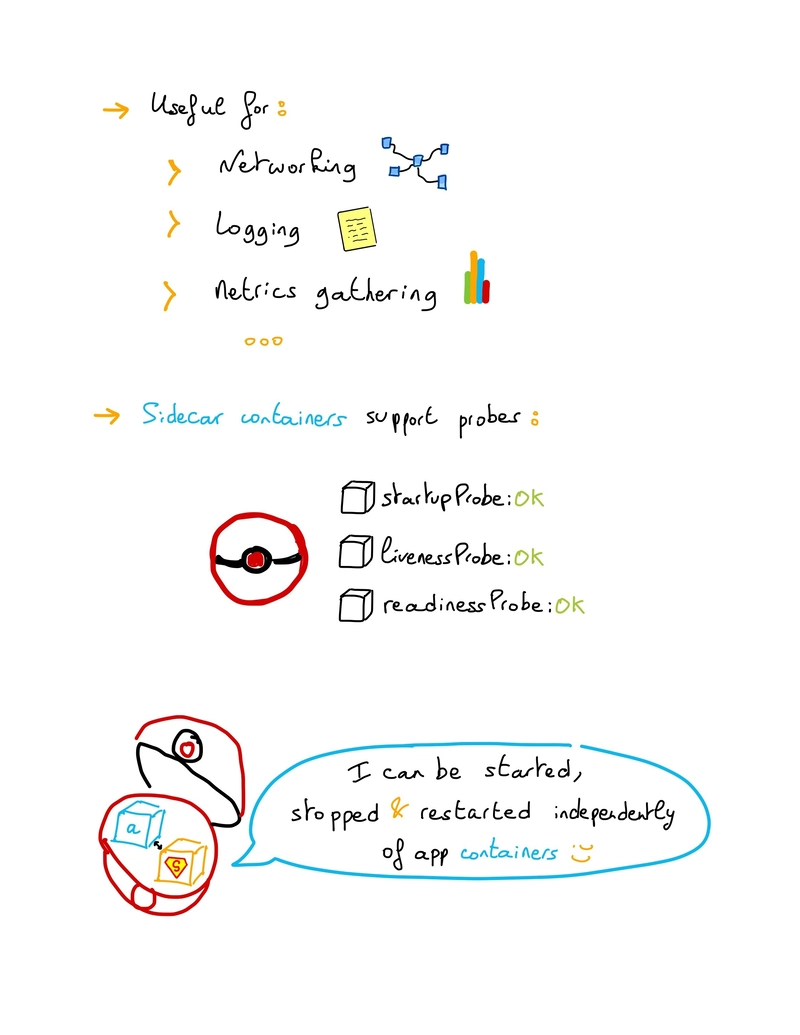 → Useful for:
> Networking
> Logging
> Metrics gathering
...
→ Sidecar containers support probes:
startupProbe: OK
livenessProbe: OK
readinessProbe: OK
I can be started,
stopped & restarted independently
of app containers :)
a
S